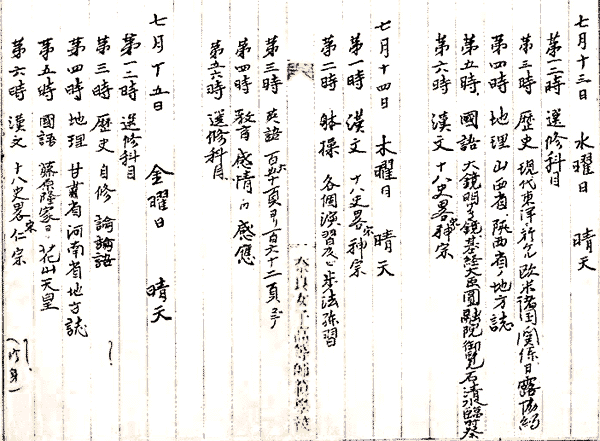 七月十三日 水曜日 晴天
第一二時 選修科目
第三時 歴史 現代東洋行允 欧米諸国ノ関係日露協約
第四時 地理 山西省、陝西省ノ地方誌
第五時 國語 大鏡明多鏡基経大臣圓融院御覧石清水臨翌暮
第六時 漢文 十八史畧宋神宗
七月十四日 木曜日 晴天
第一時 漢文 十八史畧宋神宗
第二時 体操 各個演習及ビ歩法練習
第三時 英語 百五十頁ヨリ百六十二頁マデ
第四時 教育 感情ノ感應
第五六時 選修科目
奈良女子高等師範學校
七月十五日 金曜日 晴天
第一二時 選修科目
第三時 歴史 自修 論
第四時 地理 甘粛省河南省地方誌
第五時 國語 藤原隆家ヨリ花山天皇
第六時 漢文 十八史畧宋仁宗